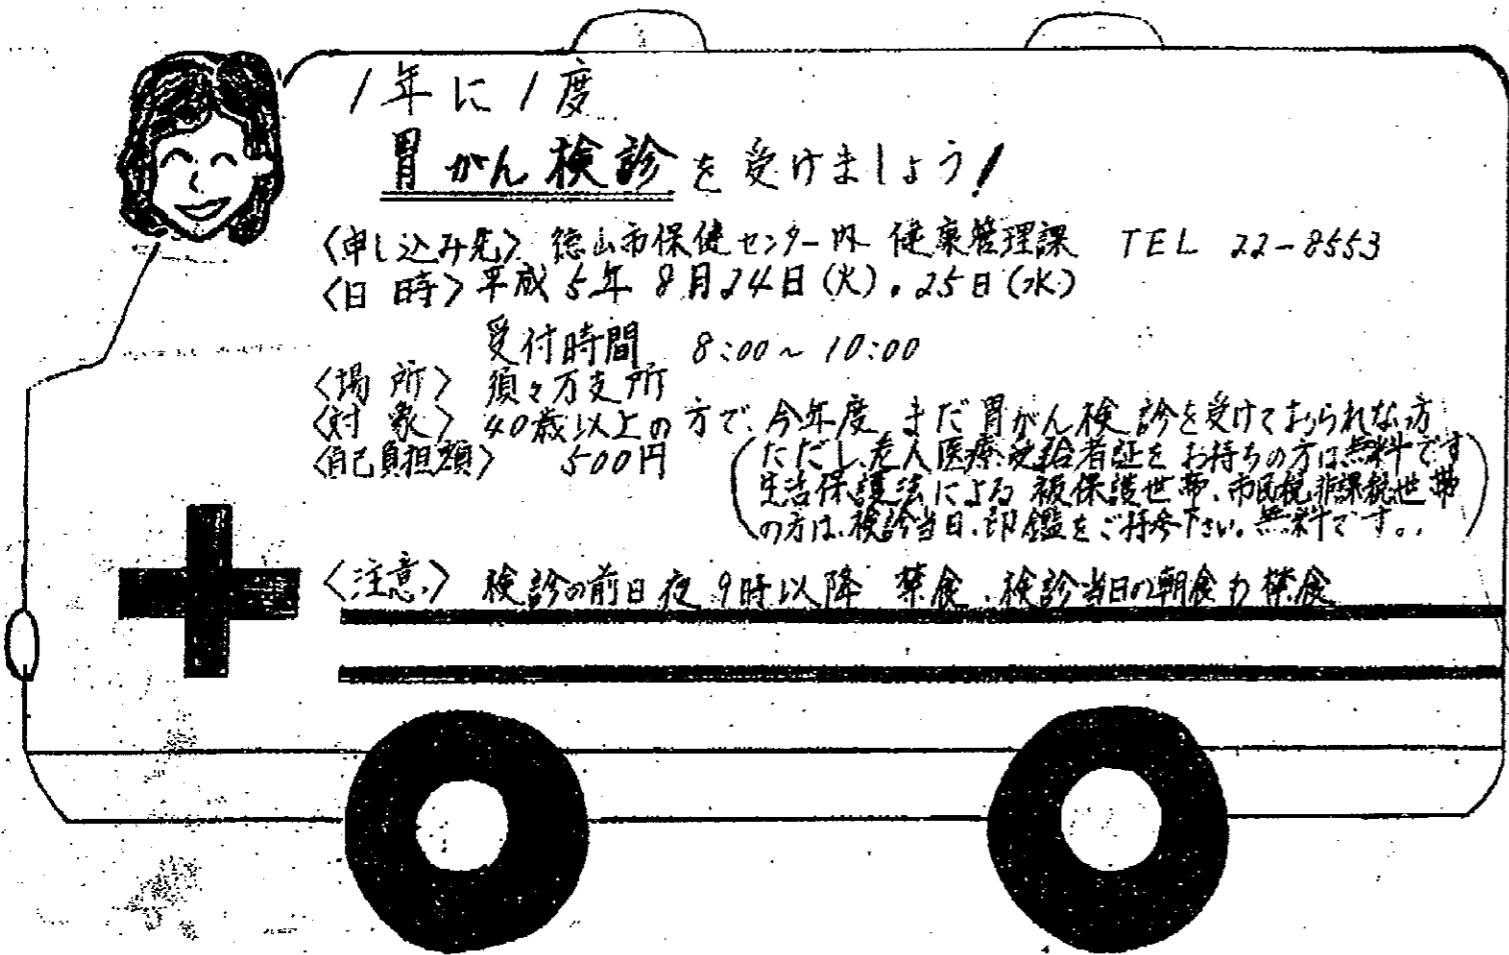 1年に1度
胃がん検診を受けましょう!
〈申し込み先〉 徳山市保健センター内 健康管理課 TEL 22-8553
〈日時〉平成5年8月24日(火)。25日(水)
受付時間 8:00~10:00
〈場所〉 須々万支所
〈対象〉 40歳以上の方で、今年度 まだ胃がん検診を受けておられない方
〈自己負担額〉 500円
(ただし、老人医療受給者証をお持ちの方は無料です
生活保護法による被保護世帯、市民税非課税世帯
の方は、検診当日、印鑑をご持参下さい。無料です。)
〈注意〉 検診の前日夜9時以降 禁食、検診当日の朝食も禁食